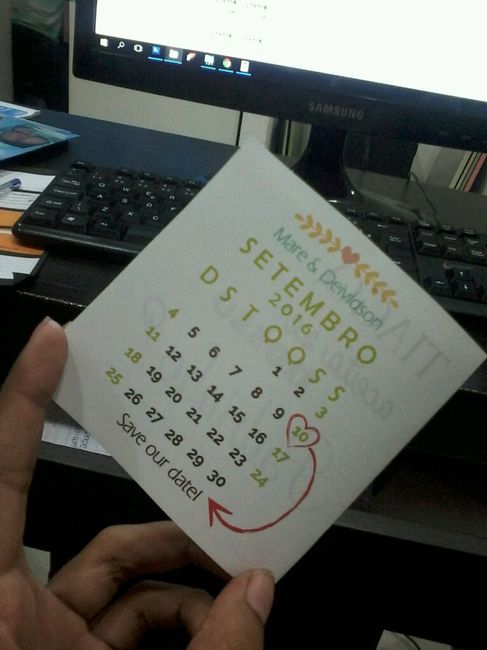 SAMSUNG
Mare & Deividson
SETEMBRO
2016
D S T Q Q S S
1 2 3
4 5 6 7 8 9 10
11 12 13 14 15 16 17
18 19 20 21 22 23 24
25 26 27 28 29 30
Save our date!